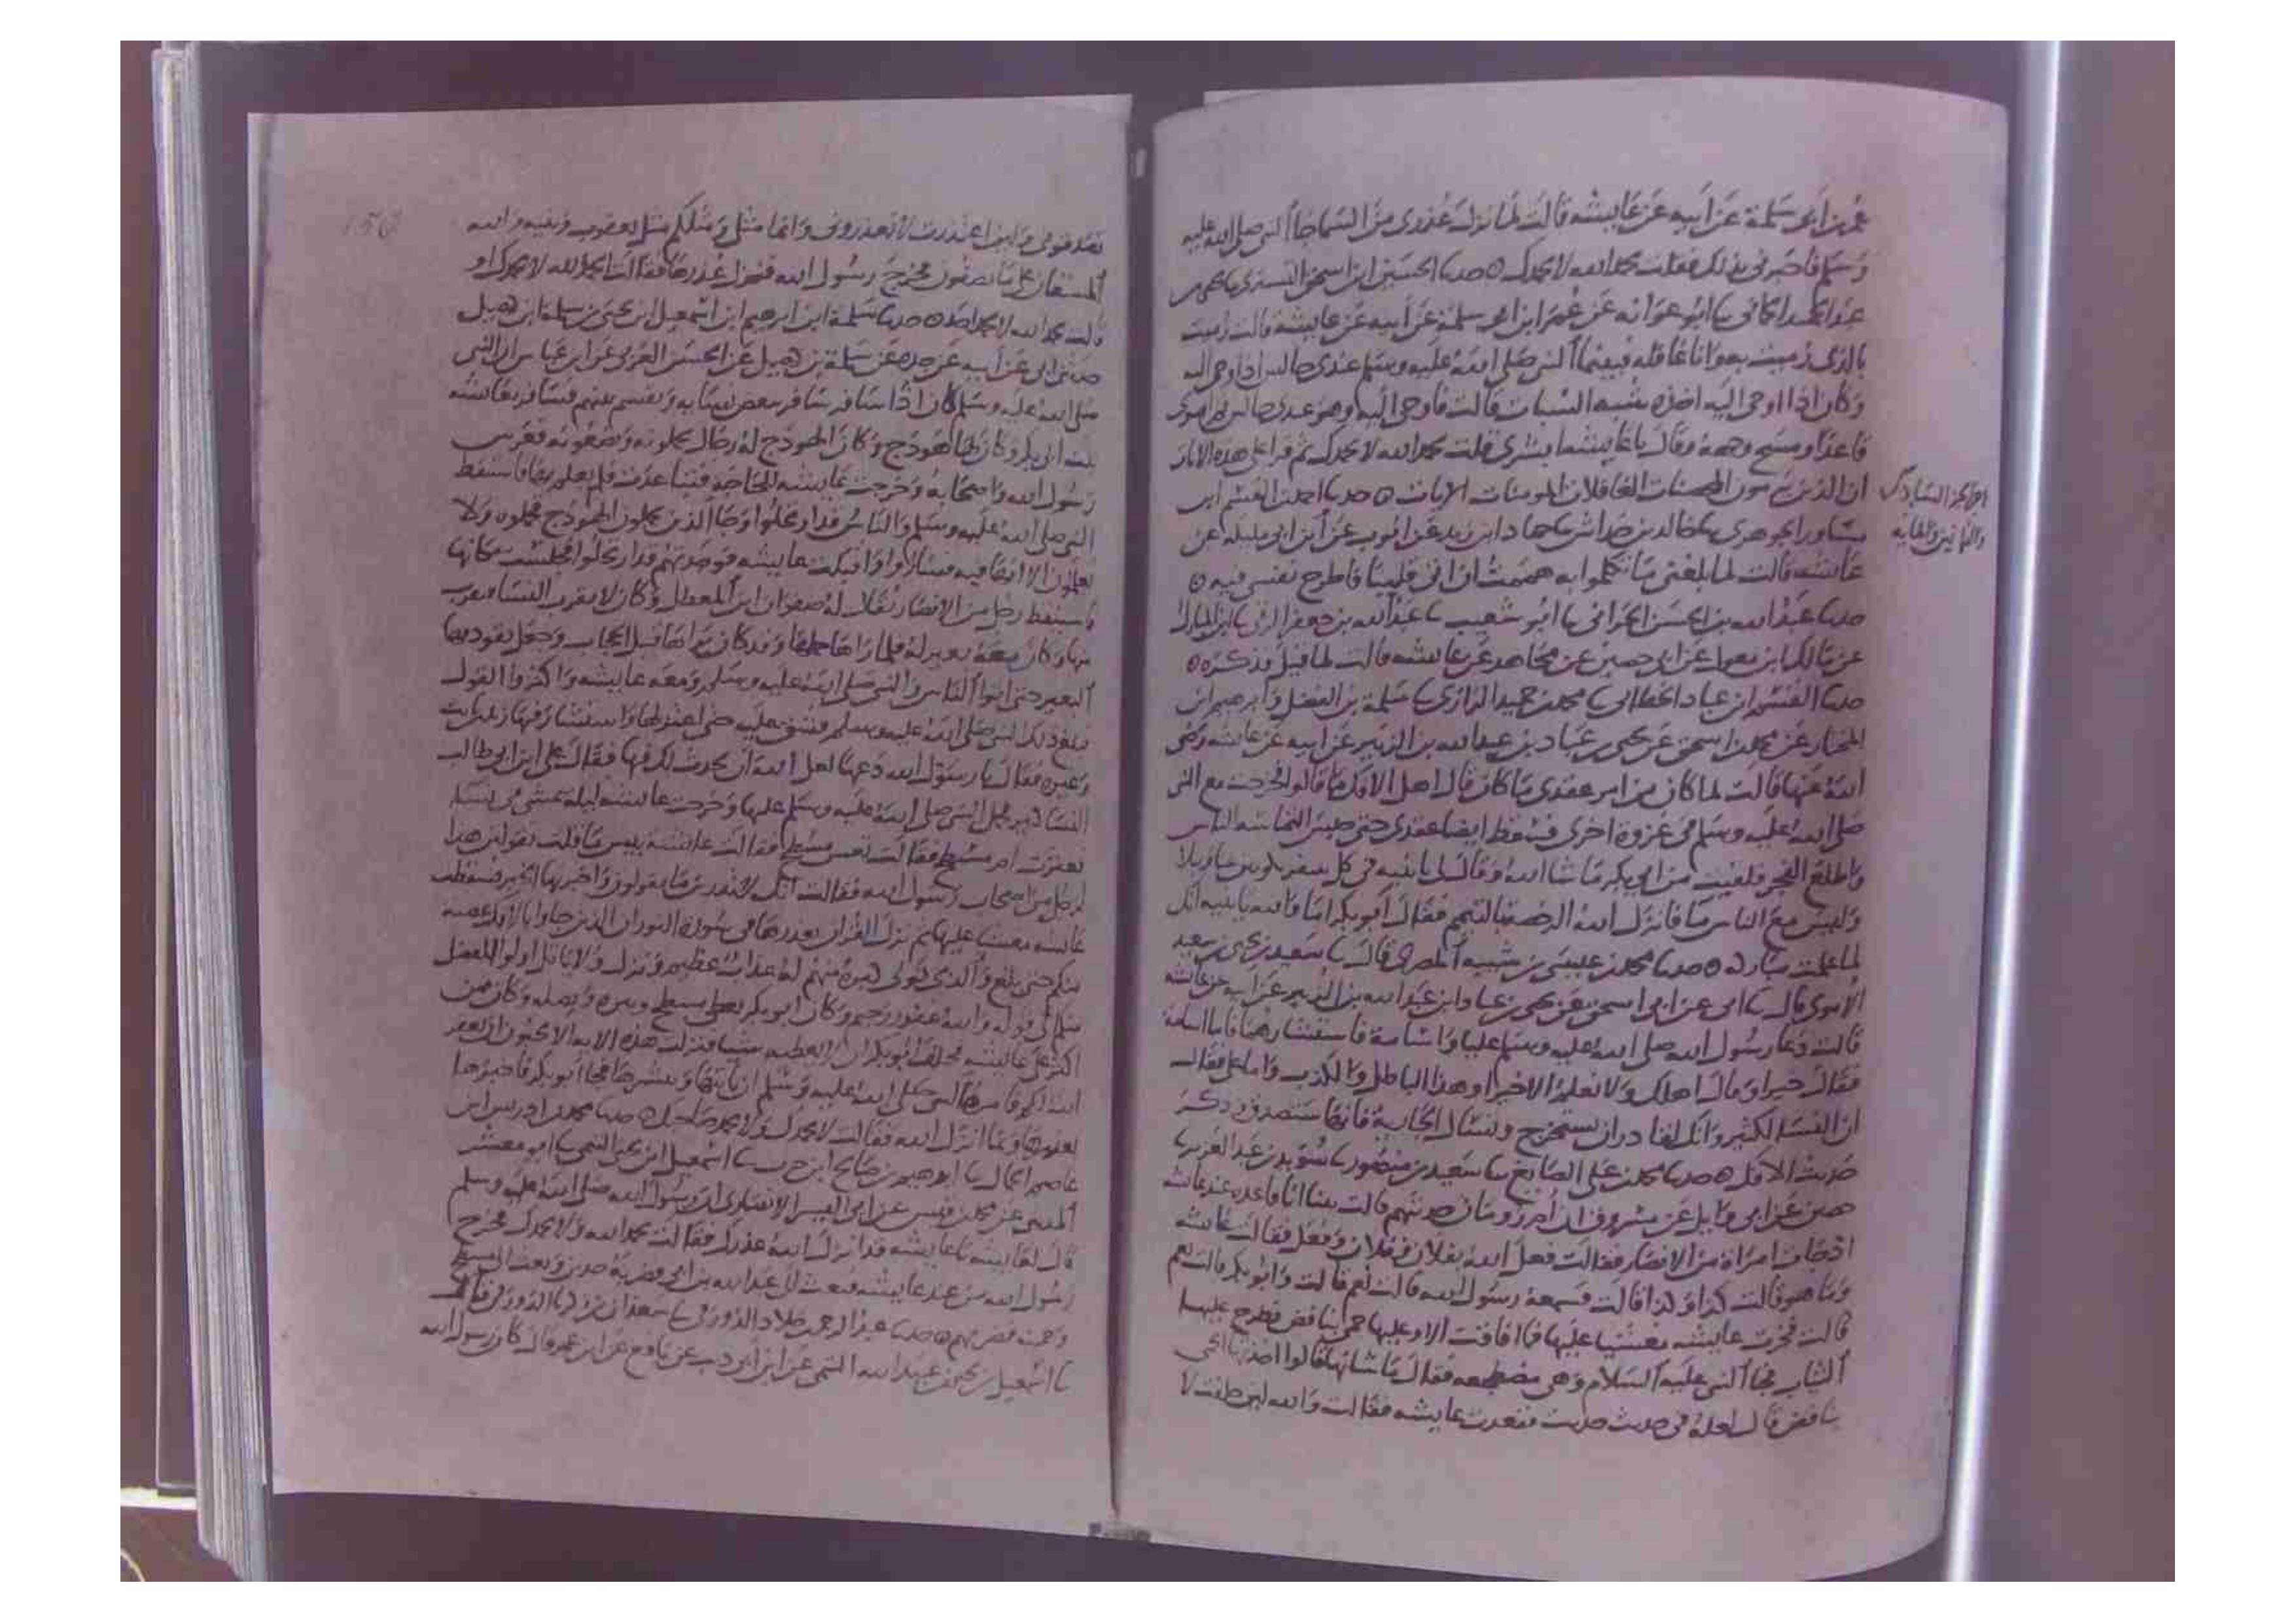 عمر بن ابي سلمة عن ابيه عن عايشه قالت لما نزل عذري من السما جا النبي صلى الله عليه
وسلم فاخبرني بذلك فقلت بحمد الله لا بحمدك حدثنا الحسين ابن اسحق التستري
ابو عوانه عن عمر ابن ابي سلمة عن ابيه عن عايشة قالت رميت
بالذي رميت به وانا غافله فبينما النبي صلى الله عليه وسلم عندي جالس اذ اوحي اليه
وكان اذا اوحي اليه اخذه شبه السبات قالت فاوحي اليه وهو عندي جالس ثم استوى
قاعدا ومسح وجهه وقال يا عايشه ابشري قلت بحمد الله لا بحمدك ثم قرا علي هذه الايات
ان الذين يرمون المحصنات الغافلات المومنات الايات حدثنا احمد بن القسم ابن
مساور الجوهري نا خالد بن خداش نا حماد ابن زيد عن ايوب عن ابن ابي مليكه عن
عايشه قالت لما بلغني ما تكلموا به هممت ان اتي قليبا فاطرح نفسي فيه
حدثنا عبد الله بن الحسن الحراني نا ابو شعيب نا عبد الله بن جعفر الرقي نا ابن المبارك
عن مالك ابن مغول عن ابي حصين عن مجاهد عن عايشه قالت لما قيل فذكره
حدثنا القسم ابن عباد الخطابي نا محمد بن حميد الرازي نا سلمة بن الفضل وابرهيم ابن
المختار عن محمد بن اسحق عن يحيى بن عباد بن عبد الله بن الزبير عن ابيه عن عايشه رضي
الله عنها قالت لما كان من امر عقدي ما كان قال اهل الافك ما قالوا فخرجت مع النبي
صلى الله عليه وسلم في غزوة اخرى فسقط ايضا عقدي حتى حبس التماسه الناس
واطلع الفجر فلقيت من ابي بكر ما شا الله وقال لي يا بنيه في كل سفر تكونين عنا وبلا
وليس مع الناس ما فانزل الله الرخصة بالتيمم فقال ابو بكر اما والله يا بنيه انك
لما علمت مباركه حدثنا محمد بن عيسى بن شيبه المصري قال نا سعيد بن يحيى بن سعيد
الاموي قال نا ابي عن ابن اسحق عن يحيى بن عباد ابن عبد الله بن الزبير عن ابيه عن عايشه
قالت دعا رسول الله صلى الله عليه وسلم عليا واسامة فاستشارهما فاما اسامة
فقال خيرا وقال اهلك ولا نعلم الا خيرا وهذا الباطل والكذب واما علي فقال
ان النسا لكثير وانك لقادر ان تستخرج وتسال الجارية فانها ستصدق وذكر
حديث الافك حدثنا محمد بن علي الصايغ نا سعيد بن منصور نا سويد بن عبد العزيز نا
حصين عن ابي وايل عن مسروق ان ام رومان حدثتهم قالت بينا انا قاعده عند عايشه
اذ جات امراة من الانصار فقالت فعل الله بفلان وفلان وفعل فقالت عايشه
وما هو قالت كذا وكذا قالت فسمعه رسول الله قالت نعم قالت وابو بكر قالت نعم
قالت فخرت عايشه مغشيا عليها فما افاقت الا وعليها حمى نافض فطرح عليها
الثياب فجا النبي عليه السلام وهي مضطجعه فقال ما شانها قالوا اخذتها الحمى
بنافض قال لعله في حديث حدثت فقعدت عايشه فقالت والله لين حلفت لا
اخر الجز السادس
والثمانين والمايه
تصدقوني ولين اعتذرت لا تعذروني وانما مثلي ومثلكم مثل يعقوب وبنيه والله
المستعان على ما تصفون فخرج رسول الله فنزل عذرها فقالت بحمد الله لا بحمدك او
قالت بحمد الله لا بحمد احد حدثنا سلمة ابن ابرهيم ابن اسمعيل ابن يحيى بن سلمة ابن كهيل
حدثني ابي عن ابيه عن جده عن سلمة بن كهيل عن الحسن العرني عن ابن عباس ان النبي
صلى الله عليه وسلم كان اذا سافر سافر ببعض نسايه ويقسم بينهم فسافر بعايشه
بنت ابي بكر وكان لها هودج وكان الهودج له رجال يحملونه ويضعونه فعرس
رسول الله واصحابه وخرجت عايشه للحاجه فتباعدت فلم يعلم بها فاستيقظ
النبي صلى الله عليه وسلم والناس قد ارتحلوا وجا الذين يحملون الهودج فحملوه ولا
يعلمون الا انها فيه فساروا واقبلت عايشه فوجدتهم قد ارتحلوا فجلست مكانها
فاستيقظ رجل من الانصار يقال له صفوان ابن المعطل وكان لا يقرب النسا فتقرب
منها وكان معه بعير له فلما راها حملها وقد كان يراها قبل الحجاب وجعل يقود بها
البعير حتى اتوا الناس والنبي صلى الله عليه وسلم ومعه عايشه واكثروا القول
فبلغ ذلك النبي صلى الله عليه وسلم فشق عليه حتى اعتزلها واستشار فيها زيد بن ثابت
وغيره فقال يا رسول الله دعها لعل الله ان يحدث لك فيها فقال علي ابن ابي طالب
النسا كثير فحمل النبي صلى الله عليه وسلم عليها وخرجت عايشه ليلة تمشي في نسا
فعثرت ام مسطح فقالت تعس مسطح فقالت عايشه بيس ما قلت تقولين هذا
لرجل من اصحاب رسول الله فقالت انك لا تدرين ما يقولون واخبرتها الخبر فسقطت
عايشه مغشيا عليها ثم نزل القران بعذرها في سورة النور ان الذين جاوا بالافك عصبة
منكم حتى بلغ والذي تولى كبره منهم له عذاب عظيم ونزل ولا ياتل اولوا الفضل
منكم الى قوله والله غفور رحيم وكان ابو بكر يعطي مسطح ويبره ويصله وكان ممن
اكثر على عايشه فحلف ابو بكر ان لا يعطيه شيا فنزلت هذه الايه الا تحبون ان يغفر
الله لكم فامره النبي صلى الله عليه وسلم ان ياتيها ويبشرها فجا ابو بكر فاخبرها
بعذرها وما انزل الله فقالت لا بحمدك ولا بحمد صاحبك حدثنا محمد بن ادريس ابن
عاصم الحمال نا ابرهيم بن صالح ابن حرب نا اسمعيل ابن يحيى التيمي نا ابو معشر
المدني عن محمد بن قيس عن ابي اليسر الانصاري ان رسول الله صلى الله عليه وسلم
قال لعايشه يا عايشه قد انزل الله عذرك فقالت بحمد الله ولا بحمدك فخرج
رسول الله من عند عايشه فبعث الى عبد الله بن ابي فضربه حدين وبعث الى مسطح
وحمنه فضربهم حدثنا عبد الرحمن بن خلاد الدورقي نا سعدان بن زكريا الدورقي
نا اسمعيل بن يحيى بن عبيد الله التيمي عن ابن ابي ذيب عن نافع عن ابن عمر قال كان رسول الله